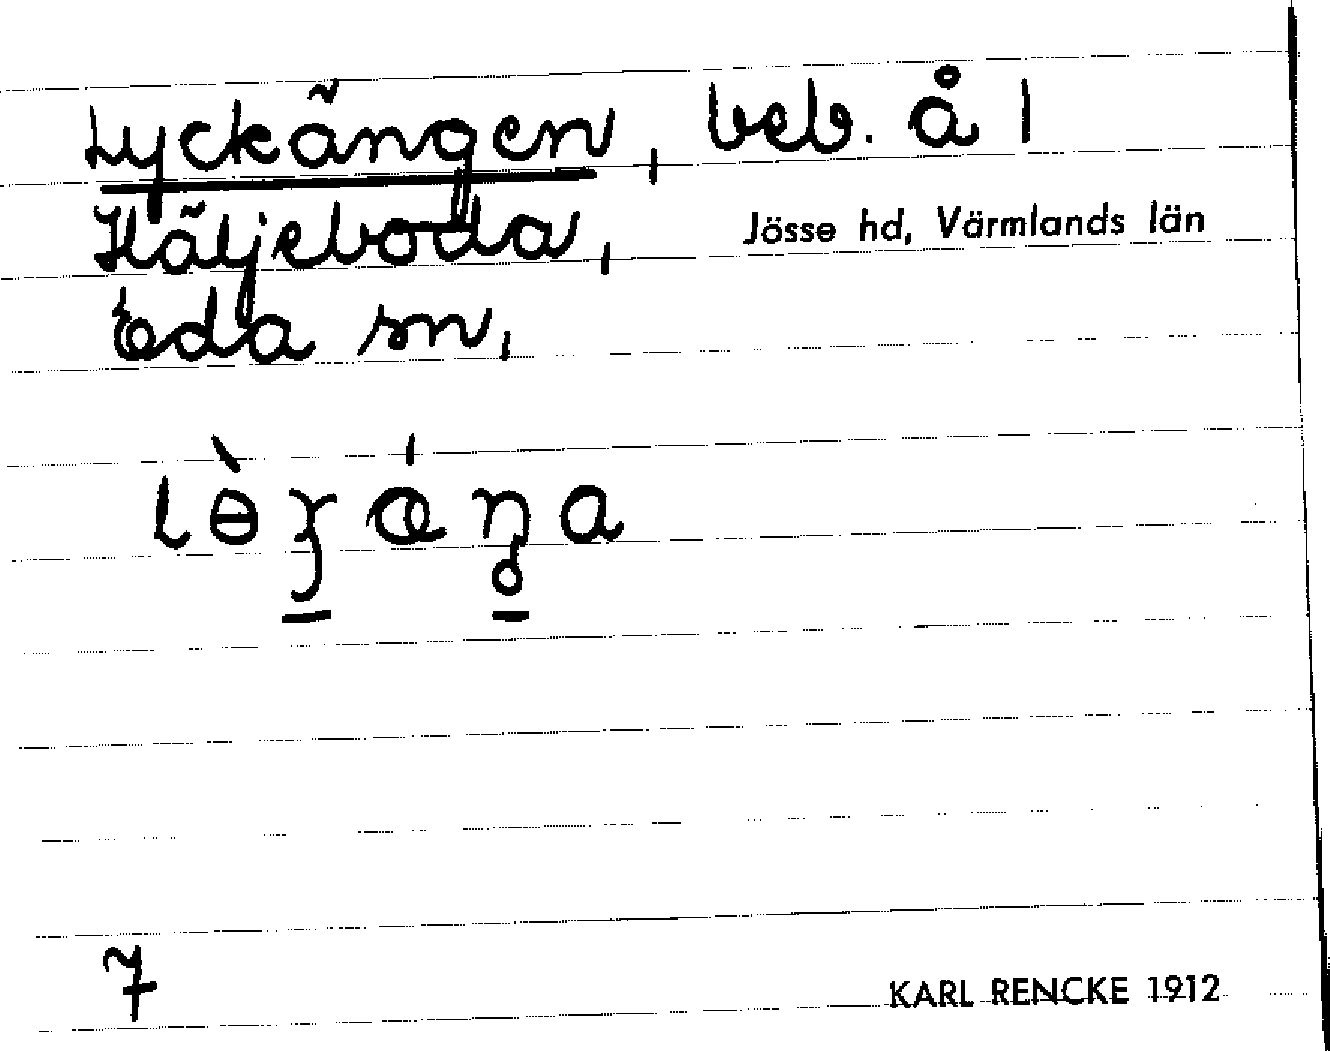 Lyckängen, beb. å 1
Häljeboda, Jösse hd, Värmlands län
Eda sn,
7
KARL RENCKE 1912